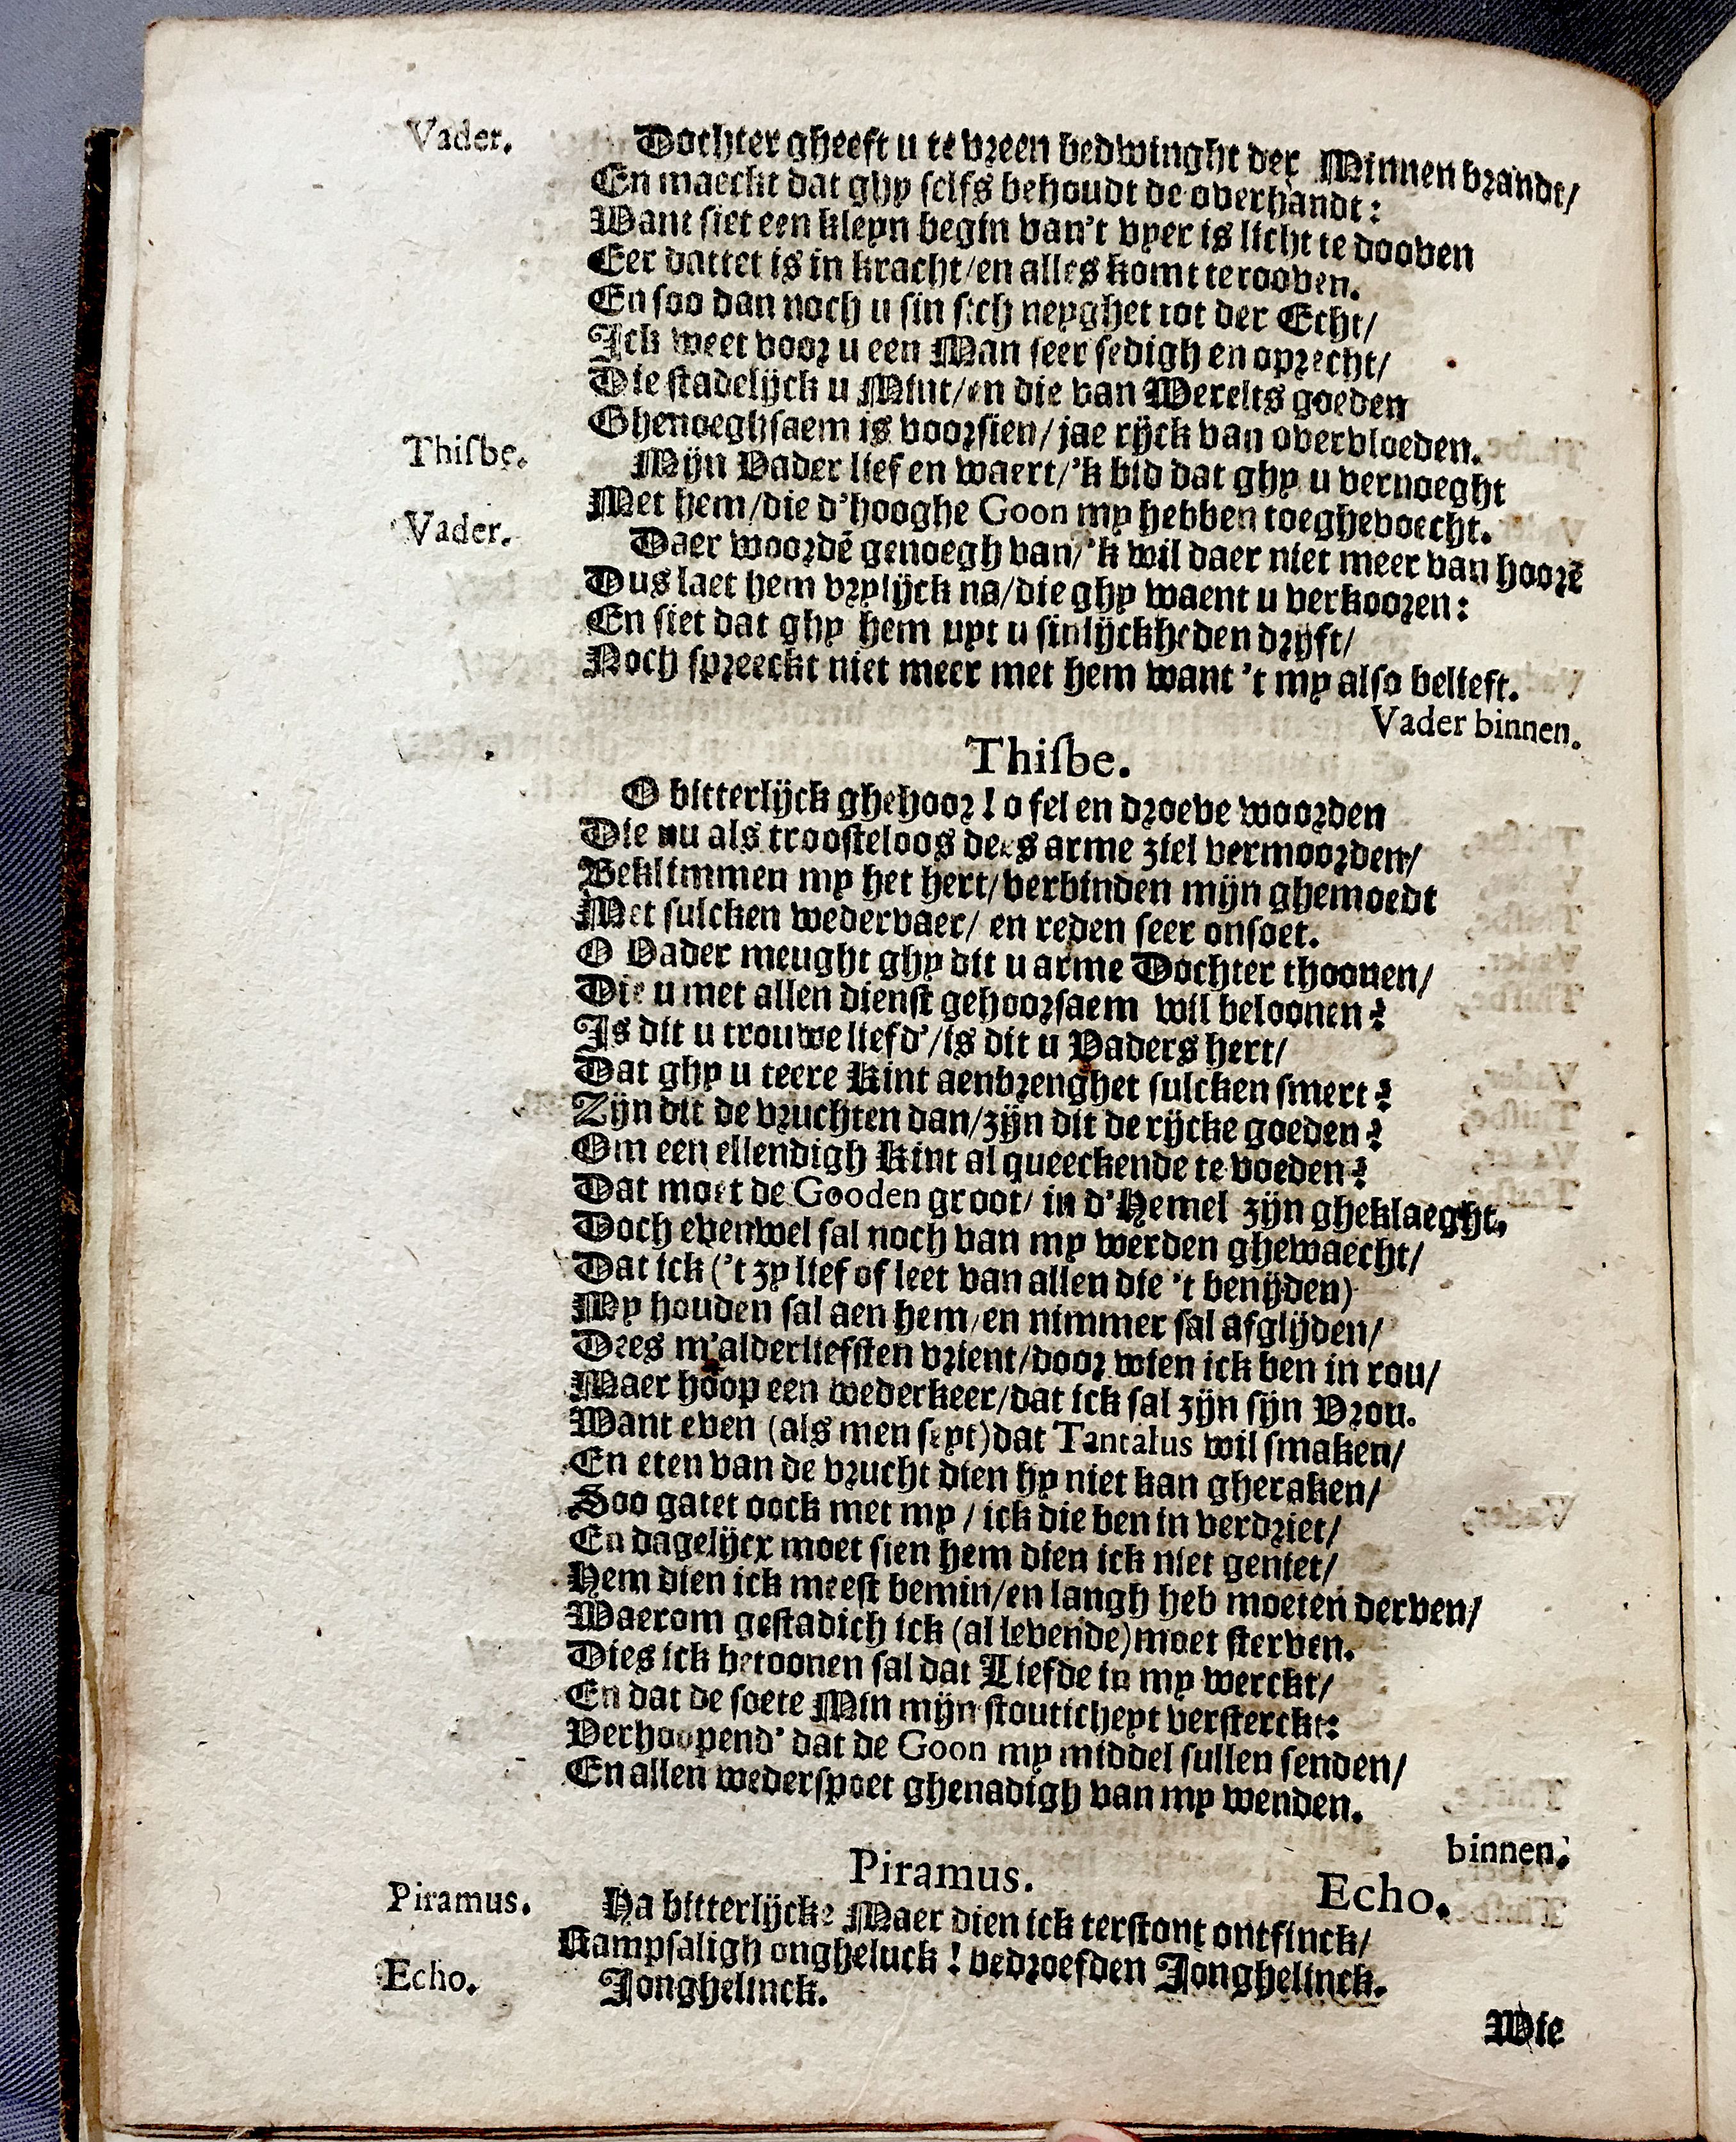 Vader. Dochter gheeft u te vreen bedwinght der Minnen brandt/
En maeckt dat ghy selfs behoudt de overhandt:
Want siet een kleyn begin van't vyer is licht te dooven
Eer dattet is in kracht/en alles komt te rooven.
En soo dan noch u sin sich neyghet tot der Echt/
Ick weet voor u een Man seer sedigh en oprecht/
Die stadelijck u Mint/en die van Werelts goeden
Ghenoeghsaem is voorsien/jae rijck van overvloeden.
Thisbe. Mijn Vader lief en waert/'k bid dat ghy u vernoeght
Met hem/die d'hooghe Goon my hebben toeghevoecht.
Vader. Daer woordē genoegh van/'k wil daer niet meer van hoorē
Dus laet hem vrylijck na/die ghy waent u verkooren:
En siet dat ghy hem uyt u sinlijckheden drijft/
Noch spreeckt niet meer met hem want 't my also belieft.
Vader binnen.
Thisbe.
O bitterlijck ghehoor! o fel en droeve woorden
Die nu als troosteloos dees arme ziel vermoorden/
Beklimmen my het hert/verbinden mijn ghemoedt
Met sulcken wedervaer/ en reden seer onsoet.
O Vader meught ghy dit u arme Dochter thoonen/
Die u met allen dienst gehoorsaem wil beloonen?
Is dit u trouwe liefd'/is dit u Vaders hert/
Dat ghy u teere Kint aenbrenghet sulcken smert?
Zijn dit de vruchten dan/zijn dit de rijcke goeden?
Om een ellendigh Kint al queeckende te voeden?
Dat moet de Gooden groot/ in d'Hemel zijn gheklaeght.
Doch evenwel sal noch van my werden ghewaecht/
Dat ick ('t zy lief of leet van allen die 't benijden)
My houden sal aen hem/en nimmer sal afglijden/
Dees m'alderliefsten vrient/door wien ick ben in rou/
Maer hoop een wederkeer/dat ick sal zijn sijn Vrou.
Want even (als men seyt) dat Tantalus wil smaken/
En eten van de vrucht dien hy niet kan gheraken/
Soo gatet oock met my / ick die ben in verdriet/
En dagelijcx moet sien hem dien ick niet geniet/
Hem dien ick meest bemin/en langh heb moeten derven/
Waerom gestadich ick (al levende) moet sterven.
Dies ick betoonen sal dat Liefde in my werckt/
En dat de soete Min mijn stouticheyt versterckt:
Verhoopend' dat de Goon my middel sullen senden/
En allen wederspoet ghenadigh van my wenden.
binnen.
Piramus. Echo.
Piramus. Ha bitterlijcke Maer dien ick terstont ontfinck/
Rampsaligh ongheluck! bedroefden Jonghelinck.
Echo. Jonghelinck.
Wie